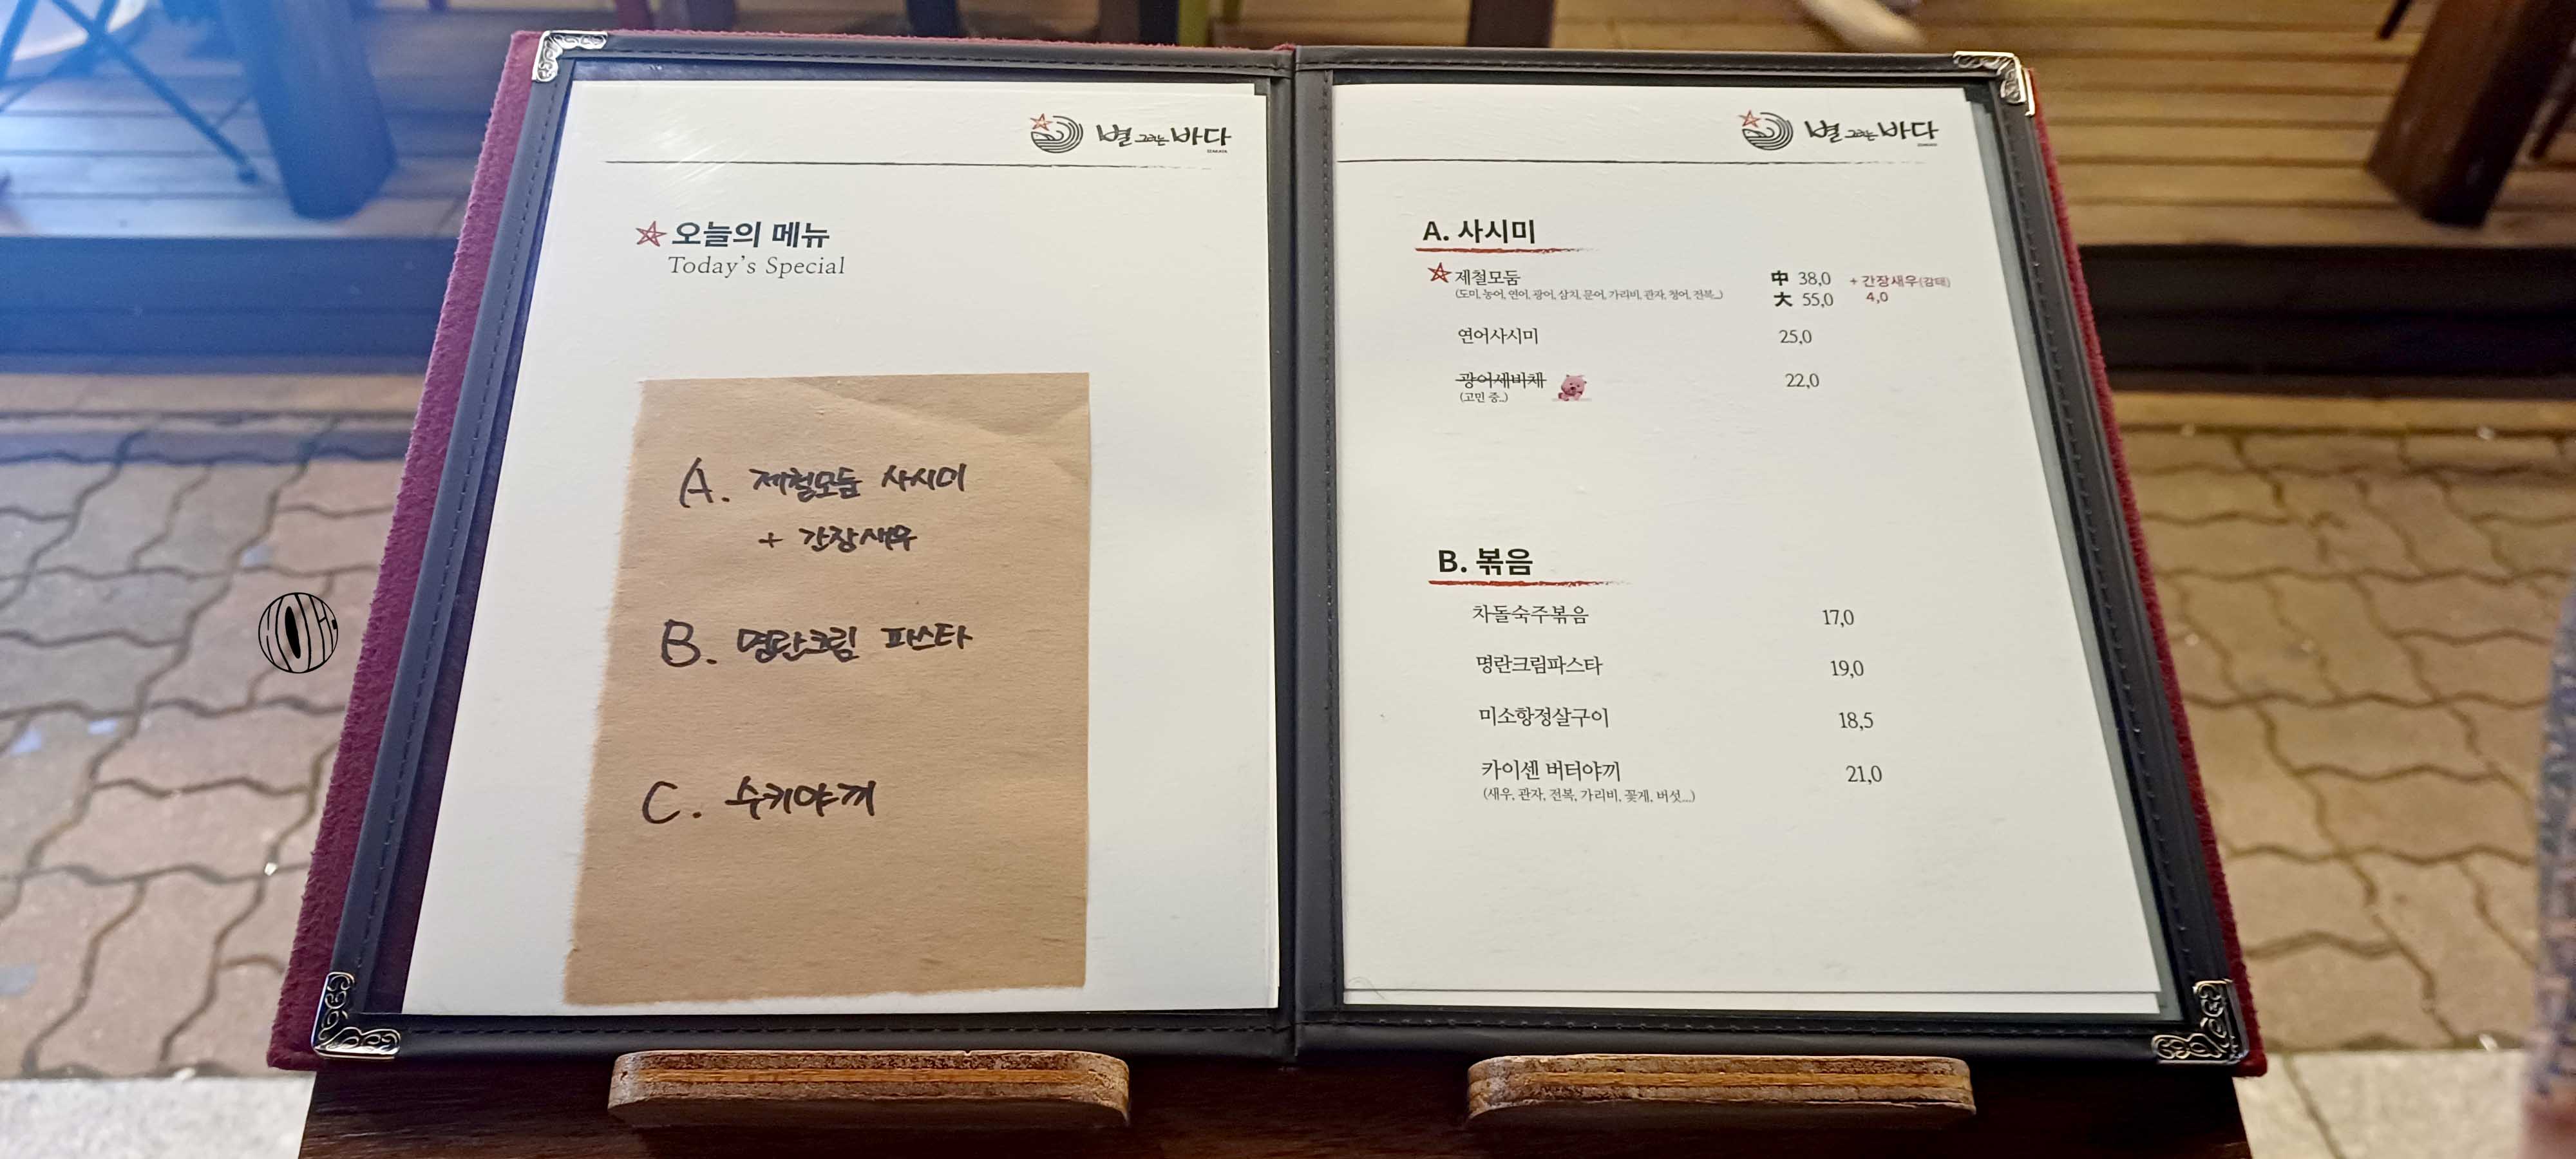 별 그리는 바다
오늘의 메뉴
Today's Special
A. 제철모둠 사시미
+ 간장새우
B. 명란크림 파스타
C. 수키야끼
별 그리는 바다
A. 사시미
제철모둠 中 38,0 + 간장새우(감태)
(도미, 농어, 연어, 광어, 삼치, 문어, 가리비, 관자, 청어, 전복...) 大 55,0 4,0
연어사시미 25,0
광어세비체 22,0
(고민 중..)
B. 볶음
차돌숙주볶음 17,0
명란크림파스타 19,0
미소항정살구이 18,5
카이센 버터야끼 21,0
(새우, 관자, 전복, 가리비, 꽃게, 버섯...)